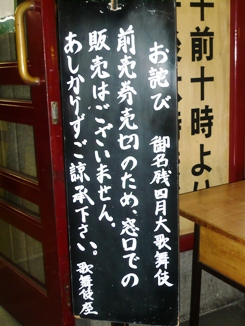 お詫び 御名残四月大歌舞伎
前売券売切のため、窓口での
販売はございません。
あしかりずご諒承下さい。
歌舞伎座
午前十時よ